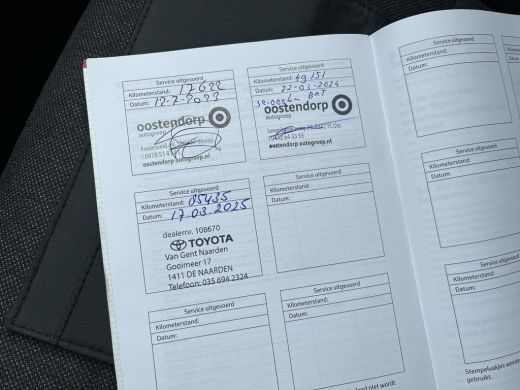 Service uitgevoerd
Kilometerstand: 17622
Datum: 12-7-2023
oostendorp
autogroep
oostendorp-autogroep.nl
Service uitgevoerd
Kilometerstand: 49151
Datum: 22-03-2024
oostendorp
autogroep
oostendorp-autogroep.nl
Service uitgevoerd
Kilometerstand: 05435
Datum: 17.03.2025
dealernr. 108670
TOYOTA
Van Gent Naarden
Gooimeer 17
1411 DE NAARDEN
Telefoon: 035 694 2324
Service uitgevoerd
Kilometerstand:
Datum:
Service uitgevoerd
Kilometerstand:
Datum:
Service uitgevoerd
Kilometerstand:
Datum:
Service uitgevoerd
Kilometerstand:
Datum:
Service uitgevoerd
Kilometerstand:
Datum:
Service uitgevoerd
Kilometerstand:
Datum:
Stempelvakjes worden
gebruikt.